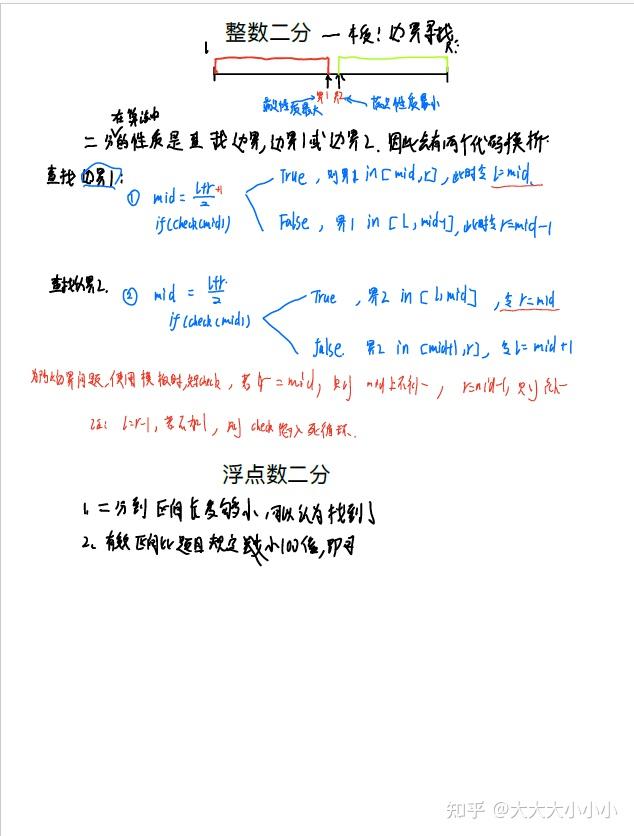 整数二分 — 本质！边界寻找
L R:
满足性质最大 界1 界2 满足性质最小
在算法中
二分的性质是查找边界,边界1或边界2. 因此会有两个代码模板.
查找边界1:
① mid = (l+r+1)/2 True , 则界1 in [mid,r], 此时令 l=mid.
if(check(mid)) False , 界1 in [l,mid-1], 此时令 r=mid-1
查找边界2.
② mid = (l+r)/2 True , 界2 in [l,mid] , 令 r=mid
if(check(mid)) false. 界2 in [mid+1,r], 令 l=mid+1
边界问题, 使用模板时, check , 若 r=mid, 则 mid 上不 , r=mid-1, 则
注: l=r-1, 若不加1, 则 check 陷入死循环.
浮点数二分
1. 二分到区间长度够小,可以认为找到了
2. 有效区间比题目规定 小100倍,即可
知乎 @大大大小小小